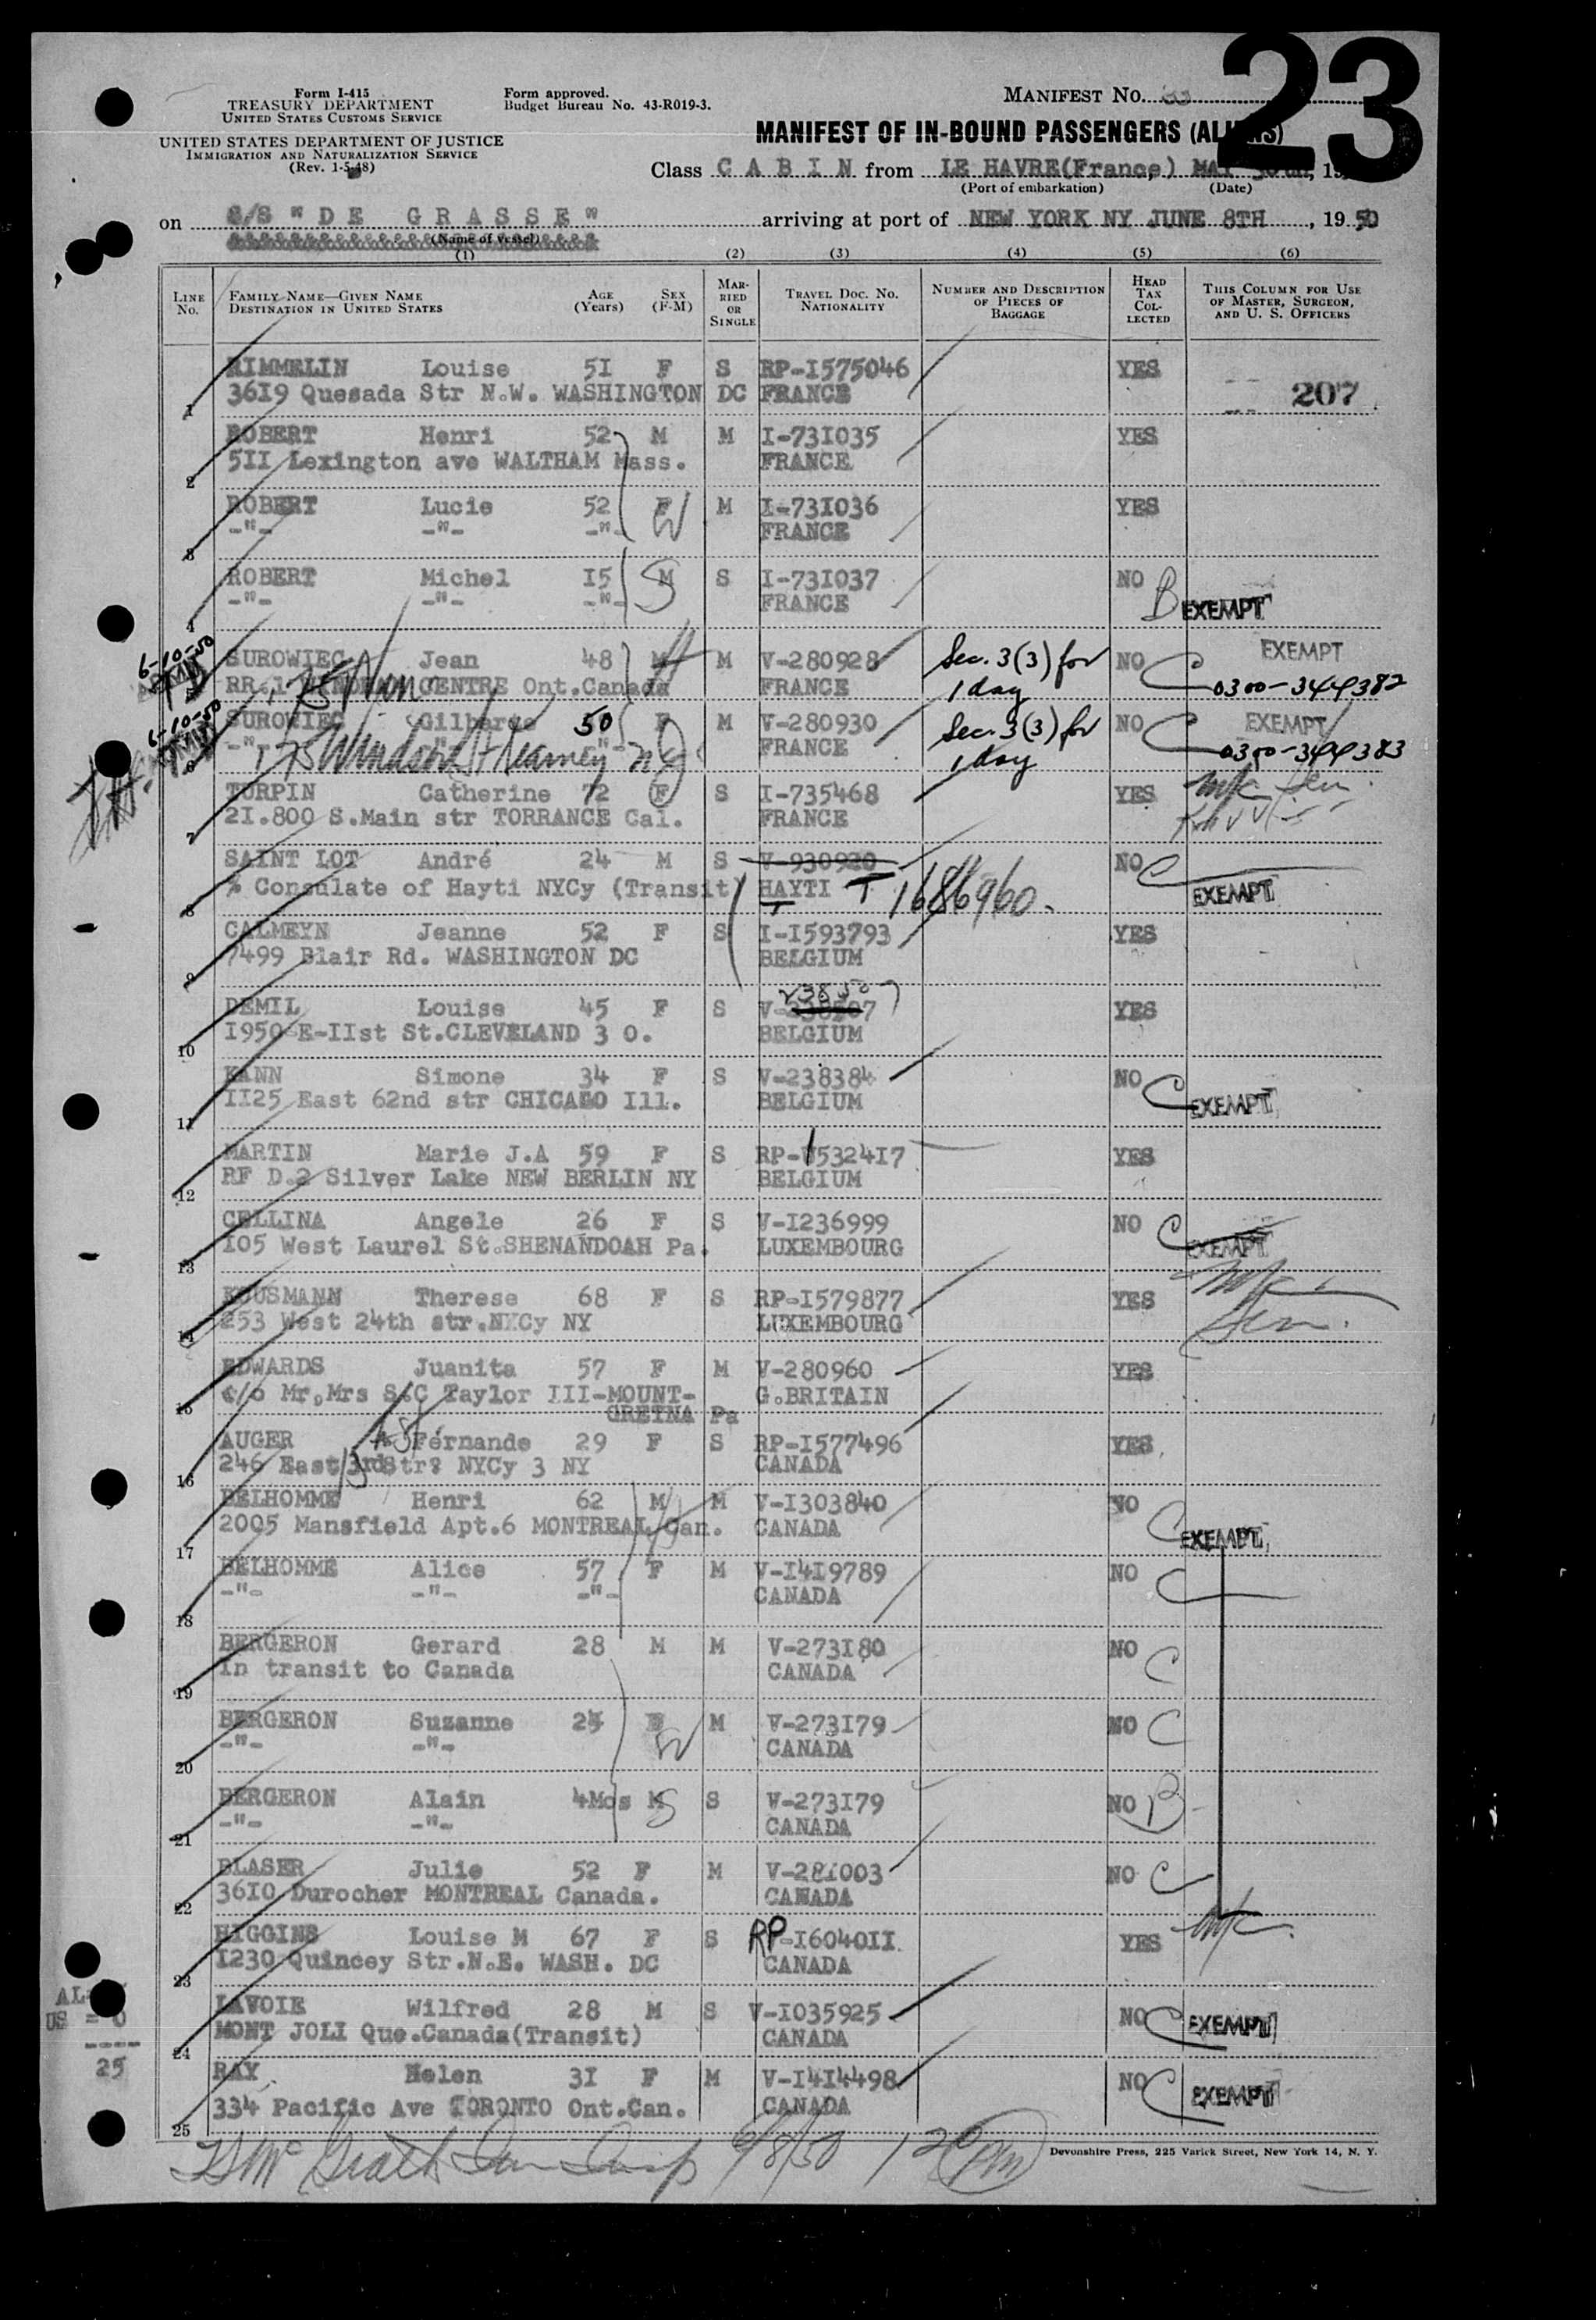 23
Form I-415
TREASURY DEPARTMENT
UNITED STATES CUSTOMS SERVICE
UNITED STATES DEPARTMENT OF JUSTICE
IMMIGRATION AND NATURALIZATION SERVICE
(Rev. 1-5-48)
Form approved.
Budget Bureau No. 43-R019-3.
MANIFEST NO.
MANIFEST OF IN-BOUND PASSENGERS (ALIENS)
Class C A B I N from LE HAVRE(France) MAY 30th, 19
(Port of embarkation) (Date)
on S/S "D E G R A S S E" arriving at port of NEW YORK NY JUNE 8TH, 1950
(Name of vessel)
(1) (2) (3) (4) (5) (6)
LINE No. FAMILY NAME—GIVEN NAME DESTINATION IN UNITED STATES AGE (Years) SEX (F-M) MARRIED OR SINGLE TRAVEL DOC. NO. NATIONALITY NUMBER AND DESCRIPTION OF PIECES OF BAGGAGE HEAD TAX COLLECTED THIS COLUMN FOR USE OF MASTER, SURGEON, AND U. S. OFFICERS
RIMMELIN Louise 51 F S RP-I575046 YES
1 3619 Quesada Str N.W. WASHINGTON DC FRANCE 207
ROBERT Henri 52 M M I-731035 YES
2 511 Lexington ave WALTHAM Mass. FRANCE
ROBERT Lucie 52 F M I-731036 YES
W
3 -"- -"- -"- FRANCE
ROBERT Michel 15 M S I-731037 NO
S
4 -"- -"- -"- FRANCE B EXEMPT
6-10-50
SUROWIEC Jean 48 M M V-280928 Sec. 3(3) for NO C EXEMPT
H
5 RR.1 CENTRE Ont.Canada FRANCE 1 day 0300-344382
6-10-50
SUROWIEC Gilberte 50 F M V-280930 Sec. 3(3) for NO C EXEMPT
6 -"- 75 Windsor St Kearney NJ FRANCE 1 day 0300-344383
TURPIN Catherine 72 F S I-735468 YES
7 21.800 S.Main str TORRANCE Cal. FRANCE
SAINT LOT André 24 M S V-930920 NO C
8 % Consulate of Hayti NYCy (Transit) HAYTI T 1686960. EXEMPT
CALMEYN Jeanne 52 F S I-I593793 YES
9 7499 Blair Rd. WASHINGTON DC BELGIUM
238507
DEMIL Louise 45 F S V-238507 YES
10 1950 E-IIst St.CLEVELAND 3 O. BELGIUM
KANN Simone 34 F S V-238384 NO C
11 II25 East 62nd str CHICAGO Ill. BELGIUM EXEMPT
MARTIN Marie J.A 59 F S RP-I532417 YES
12 RF D.2 Silver Lake NEW BERLIN NY BELGIUM
CELLINA Angele 26 F S V-I236999 NO C
13 105 West Laurel St.SHENANDOAH Pa. LUXEMBOURG EXEMPT
KOUSMANN Therese 68 F S RP-I579877 YES
14 253 West 24th str.NYCy NY LUXEMBOURG
EDWARDS Juanita 57 F M V-280960 YES
15 c/o Mr,Mrs S.C Taylor III-MOUNT- G.BRITAIN
GRETNA Pa
AUGER Fernande 29 F S RP-I577496 YES
16 246 East 3rd Str NYCy 3 NY CANADA
BELHOMME Henri 62 M M V-I303840 NO
17 2005 Mansfield Apt.6 MONTREAL Can. CANADA C EXEMPT
BELHOMME Alice 57 F M V-I4I9789 NO C
18 -"- -"- -"- CANADA
BERGERON Gerard 28 M M V-273I80 NO
19 In transit to Canada CANADA C
BERGERON Suzanne 24 F M V-273I79 NO C
W
20 -"- -"- CANADA
BERGERON Alain 4Mos M S V-273I79 NO B
S
21 -"- -"- CANADA
BLASER Julie 52 F M V-281003 NO C
22 3610 Durocher MONTREAL Canada. CANADA
HIGGINS Louise M 67 F S RP-I6040II YES
23 I230 Quincey Str.N.E. WASH. DC CANADA
LAVOIE Wilfred 28 M S V-I035925 NO C EXEMPT
24 MONT JOLI Que.Canada(Transit) CANADA
RAY Helen 31 F M V-I4I4498 NO C EXEMPT
25 334 Pacific Ave TORONTO Ont.Can. CANADA
AL
US = 0
----
25
6/8/50 12 PM
Devonshire Press, 225 Varick Street, New York 14, N. Y.